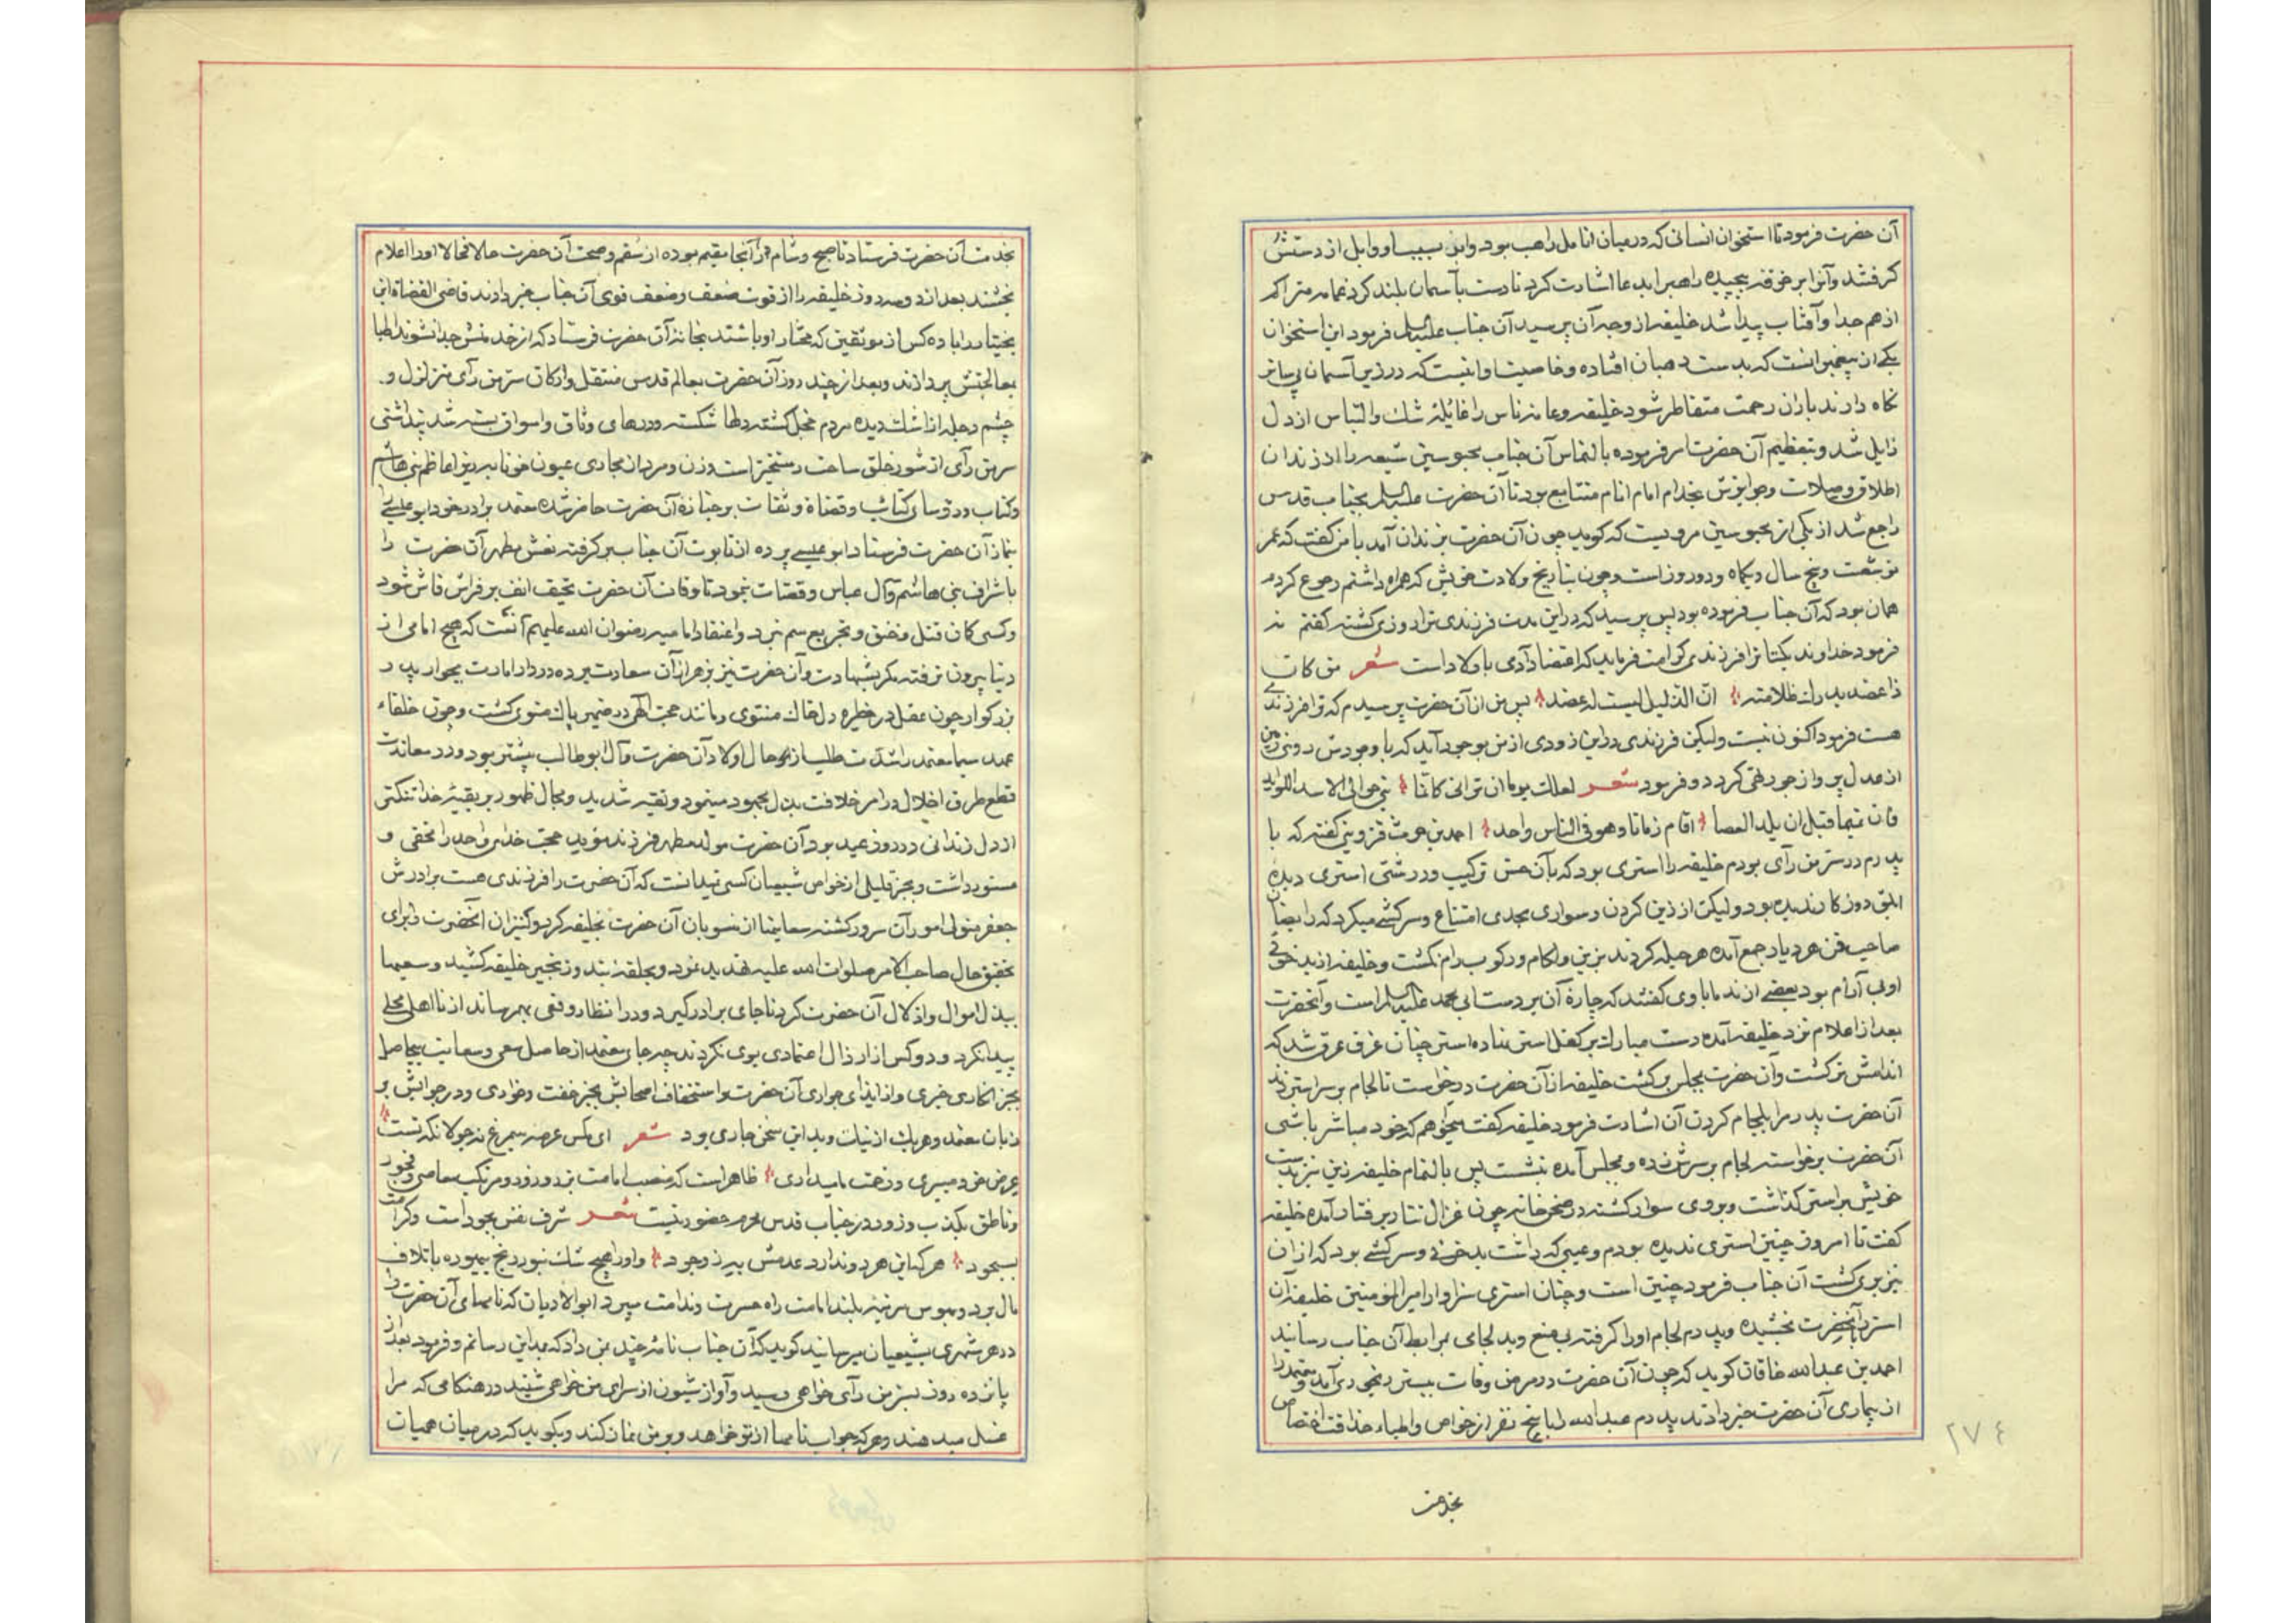 آن حضرت فرمود تا استخوان انسانی که در میان انامل راهب بود و ابر بی سیاو وابل از دستش
گرفتند و آنرا بر خرقه پیچیده راهب را بدعا اشارت کرد تا دست بآسمان بلند کرد غمامه متراکم
از هم جدا و آفتاب پیدا شد خلیفه از وجه آن پرسید آن جناب علیه السلم فرمود این استخوان
یکی از پیغمبرانست که بدست رهبان افتاده و خاصیت او اینست که در زیر آسمان بی ساتر
نگاه دارند باران رحمت متقاطر شود خلیفه و عامه ناس را غایله شک و التباس از دل
زایل شد و بتعظیم آن حضرت امر فرموده بالتماس آن جناب محبوسین شیعه را از زندان
اطلاق و صلات و جوایزش بخدام امام انام متتابع بود تا آن حضرت علیه السلم بجناب قدس
راجع شد از یکی از محبوسین مرویست که گوید چون آن حضرت بزندان آمد با من گفت که عمر
تو شصت و پنج سال و یکماه و دو روز است و چون بتاریخ ولادت خویش که همراه داشتم رجوع کردم
همان بود که آن جناب فرموده بود پس پرسید که در این مدت فرزندی ترا روزی گشته گفتم نه
فرمود خداوند یکتا ترا فرزندی کرامت فرماید که اعتضاد آدمی باولاد است شعر من کان
ذا عضد یدرک ظلامته ان الذلیل الیست له عضد پس من از آن حضرت پرسیدم که ترا فرزندی
هست فرمود اکنون نیست ولیکن فرزندی در این زودی از من بوجود آید که با وجودش روی زمین
از عدل پر و از جور تهی گردد و فرمود شعر لعلک یوما ان ترانی کانما بنی حوالی الاسد اللوابد
فان تمیما قبل ان یلد الحصا اقام زمانا و هو فی الناس واحد احمد بن حرث قزوینی گفته که با
پدرم در سر من رأی بودم خلیفه را استری بود که بآن حسن ترکیب و درشتی استری دیده
ابلق روزگار ندیده بود ولیکن از زین کردن و سواری بحدی امتناع و سرکشی میکرد که رایضان
صاحب فن هر دیار جمع آمده هر حیله کردند بزین و لگام و رکوب رام نگشت و خلیفه از بدخوئی
او بی آرام بود بعضی از ندما با وی گفتند که چاره آن بر دست ابی محمد علیه السلم است و آنحضرت
بعد از اعلام نزد خلیفه آمده دست مبارک بر کفل استر نهاده استر چنان غرق عرق شد که
اندامش تر گشت و آن حضرت بمجلس برگشت خلیفه از آن حضرت درخواست تا لجام بر سر استر زند
آن حضرت پدر مرا بلجام کردن آن اشارت فرمود خلیفه گفت میخواهم که خود مباشر باشی
آن حضرت برخواسته لجام بر سرش زده و بمجلس آمده بنشست پس بالتماس خلیفه زین نیز بدست
خویش بر استر گذاشت و بر وی سوار گشته در صحن خانه چون غزال تتار برفتار آمده خلیفه
گفت تا امروز چنین استری ندیده بودم و عیبی که داشت بدخوئی و سرکشی بود که از آن
نیز بری گشت آن جناب فرمود چنین است و چنان استری سزاوار امیر المومنین خلیفه آن
استر بآنحضرت بخشیده و پدرم لجام او را گرفته بی منع و بدلجامی بمرابط آن جناب رسانید
احمد بن عبدالله خاقان گوید که چون آن حضرت در مرض وفات ببستر رنجوری آمد و معتمد را
از بیماری آن حضرت خبر دادند پدرم عبدالله را با پنج نفر از خواص و اطباء حذاقت اختصاص
بخدمت
۲۷۴
بخدمت آن حضرت فرستاد تا صبح و شام در آنجا مقیم بوده از سقم و صحت آن حضرت حالا فحالا او را اعلام
بخشند بعد از دو سه روز خلیفه را از قوت ضعف و ضعف قوی آن جناب خبر دادند قاضی القضاة ابن
بختیار را با ده کس از موثقین که مختار او باشند بخانه آن حضرت فرستاد که از خدمتش جدا نشوند اطبا
بمعالجتش پردازند و بعد از چند روز آن حضرت بعالم قدس منتقل و ارکان سر من رأی متزلزل و
چشم دجله از اشک دیده مردم خجل گشته دلها شکسته و درهای وثاق و اسواق بسته شد پنداشتی
سر من رأی از شور خلق ساحت رستخیز است و زن و مرد از مجاری عیون خونابه ریز اعاظم بنی هاشم
و کتاب و رؤسای کتائب و قضاة و ثقات بر جنازه آن حضرت حاضر شده معتمد برادر خود ابو عیسی را
بنماز آن حضرت فرستاد ابو عیسی پرده از تابوت آن جناب بر گرفته نعش مطهر آن حضرت را
باشراف بنی هاشم و آل عباس و قضات بنمود تا وفات آن حضرت بحتف انف بر فراش فاش شود
و کسی کمان قتل و خنق و تجریع سم نبرد و اعتقاد امامیه رضوان الله علیهم آنست که هیچ امامی از
دنیا بیرون نرفته مگر بشهادت و آن حضرت نیز بزهر از آن سعادت بهره در دار امارت بجوار پدر
بزرگوار چون عقل در خطیره دل خاک منتوی و مانند حجت الهی در ضمیر پاک منوی گشت و چون خلفاء
عهد سیما معتمد را شدت طلب از حال اولاد آن حضرت و آل ابو طالب بیشتر بود و در معاندت
قطع طرق اخلال در امر خلافت بذل مجهود مینمود و تقیه شدید و مجال ظهور بر بقیه خدا تنگتر
از دل زندانی در روز عید بود آن حضرت مولد مطهر فرزند مؤید حجت خدای واحد را مخفی و
مستور داشت و بجز قلیلی از خواص شیعیان کسی نیدانست که آن حضرت را فرزندی هست برادرش
جعفر متولی امور آن سرور گشته سعایتها از منسوبان آن حضرت بخلیفه کرد و کنیزان آنحضرت را برای
تحقیق حال صاحب الامر صلوات الله علیه تهدید نمود و بحلقه بند و زنجیر خلیفه کشید و سعیها
ببذل اموال و اذلال آن حضرت کرد تا جای برادر گیرد و در انظار وقعی بهم رساند از نا اهلی محلی
پیدا نکرد و دو کس از ارذال اعتمادی بوی نکردند چه جای معتمد از حاصل سعی و سعایت بیحاصل
بجز انکاری خبری و از ایذای جواری آن حضرت و استخفاف اصحابش بجز خفت و خواری و در جوابش بر
زبان معتمد و هر یک از نیک و بد این سخن جاری بود شعر ای مگس عرصه سیمرغ نه جولانگه تست
عرض خود میبری و زحمت ما میداری ظاهر است که منصب امامت نزد و رود و مرتکب معاصی و فجور
و ناطق بکذب و زور در جناب قدس محرم حضور نیست شعر شرف نفس بجود است و کرامت
بسجود هر که این هر دو ندارد عدمش به ز وجود و او را هیچ شک نبود رنج بیهوده باتلاف
مال برد و بهوس مرتبه بلند امامت راه حسرت و ندامت سپرد ابو الادیان که نامهای آن حضرت را
در هر شهری بشیعیان میرسانید گوید که آن جناب نامه چند بمن داد که بمداین رسانم و فرمود بعد از
پانزده روز بسر من رأی خواهی رسید و آواز شیون از سرای من خواهی شنید در هنگامی که مرا
غسل میدهند و هر که جواب نامها از تو خواهد و بر من نماز کند و بگوید که در میان همیان